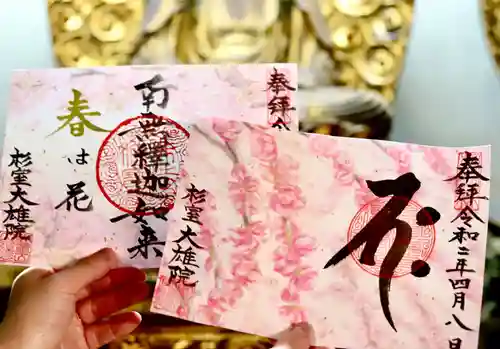 奉拝
南無釋迦如来
春
は
花
杉室
大雄院
奉拝
令和二年四月八日
杉室
大雄院